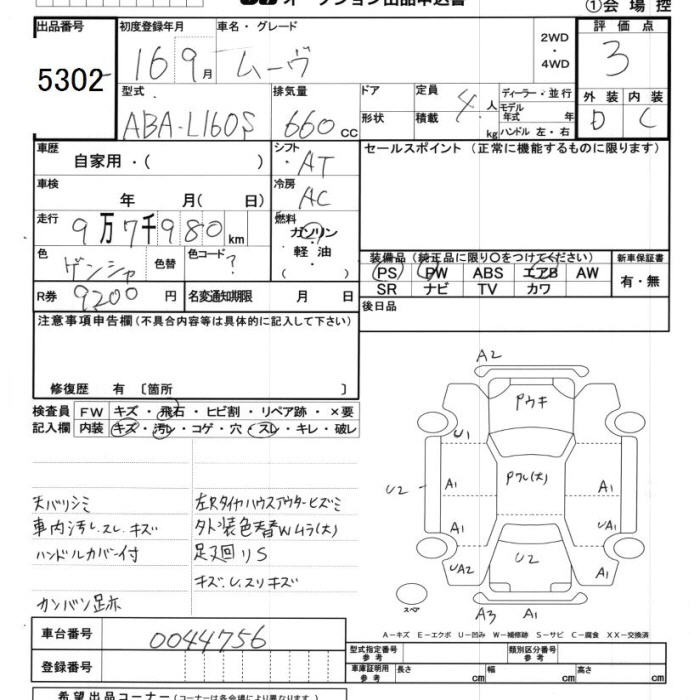 オークション出品申込書
①会場控
出品番号 初度登録年月 車名・グレード 2WD ・ 4WD 評価点
5302 16 9月 ムーヴ 3
型式 排気量 ドア 定員 人 ディーラー・並行 外装 内装
ABA-L160S 660 cc 形状 積載 4 kg モデル年式 年 D C
ハンドル 左・右
車歴 自家用・( ) シフト ・AT セールスポイント(正常に機能するものに限ります)
車検 年 月(日) 冷房 AC
走行 9万7千980km 燃料 ガソリン・軽油・
色 色替 色コード? 装備品(純正品に限り○をつけてください) 新車保証書
PS PW ABS エアB AW 有・無
R券 9200円 名変通知期限 月 日 SR ナビ TV カワ
注意事項申告欄(不具合内容等は具体的に記入して下さい) 後日品
修復歴 有 〔箇所 〕
検査員 FW キズ・飛石・ヒビ割・リペア跡・×要
記入欄 内装 キズ・汚レ・コゲ・穴・スレ・キレ・破レ
A2
Pウキ
U1
U2 A1 Pワレ(大) A1
A1 UA1
UA2 U2 A1
スペア
A3 A1
天バリシミ 左Rタイヤハウスアウターヒズミ
車内汚レ.スレ.キズ 外装色替Wムラ(大)
ハンドルカバー付 足叉回リS
キズ.U.スリキズ
カンバン足赤
A-キズ E-エクボ U-凹み W-補修跡 S-サビ C-腐食 XX-交換済
車台番号 0044756
型式指定番号 参考 類別区分番号 参考
登録番号 車庫証明用 参考 長さ cm 幅 cm 高さ cm
希望出品コーナー(コーナーは各会場により異なります。)